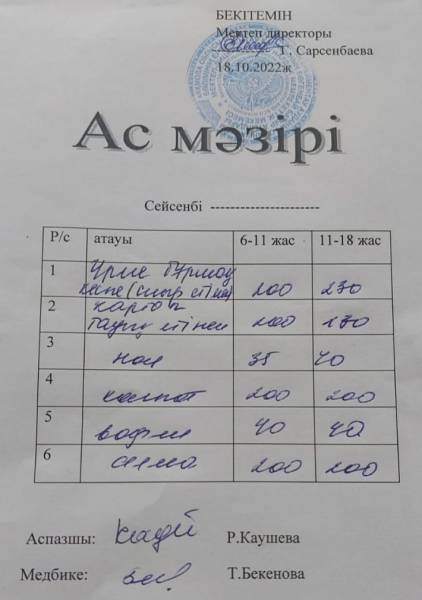 БЕКІТЕМІН
Мектеп директоры
Г. Сарсенбаева
18.10.2022ж
Ас мәзірі
Сейсенбі ----------------------
Р/с атауы 6-11 жас 11-18 жас
1 Үрме бұршақ
кеспе (сиыр етінен) 200 250
2 картоп
тауық етінен
3 нан 35 40
4 компот 200 200
5 вафли 40 40
6 алма 200 200
Аспазшы: Р.Каушева
Медбике: Т.Бекенова